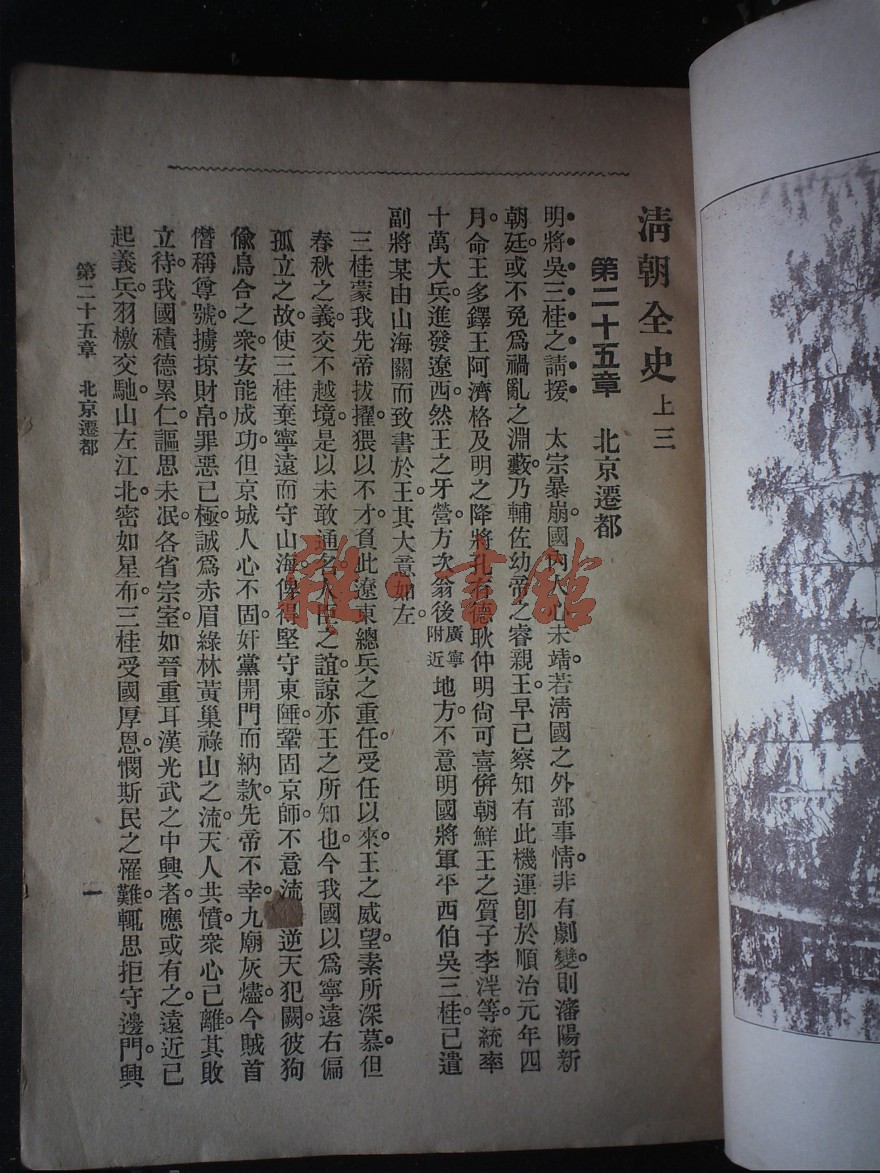 清朝全史 上三
第二十五章 北京遷都
明將吳三桂之請援 太宗暴崩。國內人心未靖。若淸國之外部事情。非有劇變。則瀋陽新
朝廷。或不免爲禍亂之淵藪。乃輔佐幼帝之睿親王。早已察知有此機運。卽於順治元年四
月。命王多鐸王阿濟格及明之降將孔有德耿仲明尙可喜倂朝鮮王之質子李淏等。統率
十萬大兵。進發遼西。然王之牙營。方次翁後廣寧附近地方。不意明國將軍平西伯吳三桂。已遣
副將某由山海關而致書於王。其大意如左。
三桂蒙我先帝拔擢。猥以不才。負此遼東總兵之重任。受任以來。王之威望。素所深慕。但
春秋之義。交不越境。是以未敢通名。人臣之誼。諒亦王之所知也。今我國以爲寧遠右偏
孤立之故。使三桂棄寧遠而守山海。俾得堅守東陲。鞏固京師。不意流逆天犯闕。彼狗
偸鳥合之衆。安能成功。但京城人心不固。奸黨開門而納款。先帝不幸。九廟灰燼。今賊首
僭稱尊號。擄掠財帛。罪惡已極。誠爲赤眉綠林黃巢祿山之流。天人共憤。衆心已離。其敗
立待。我國積德累仁。謳思未泯。各省宗室。如晉重耳漢光武之中興者。應或有之。遠近已
起義兵。羽檄交馳。山左江北。密如星布。三桂受國厚恩。憫斯民之罹難。輒思拒守邊門。興
第二十五章 北京遷都
一
雜·書館